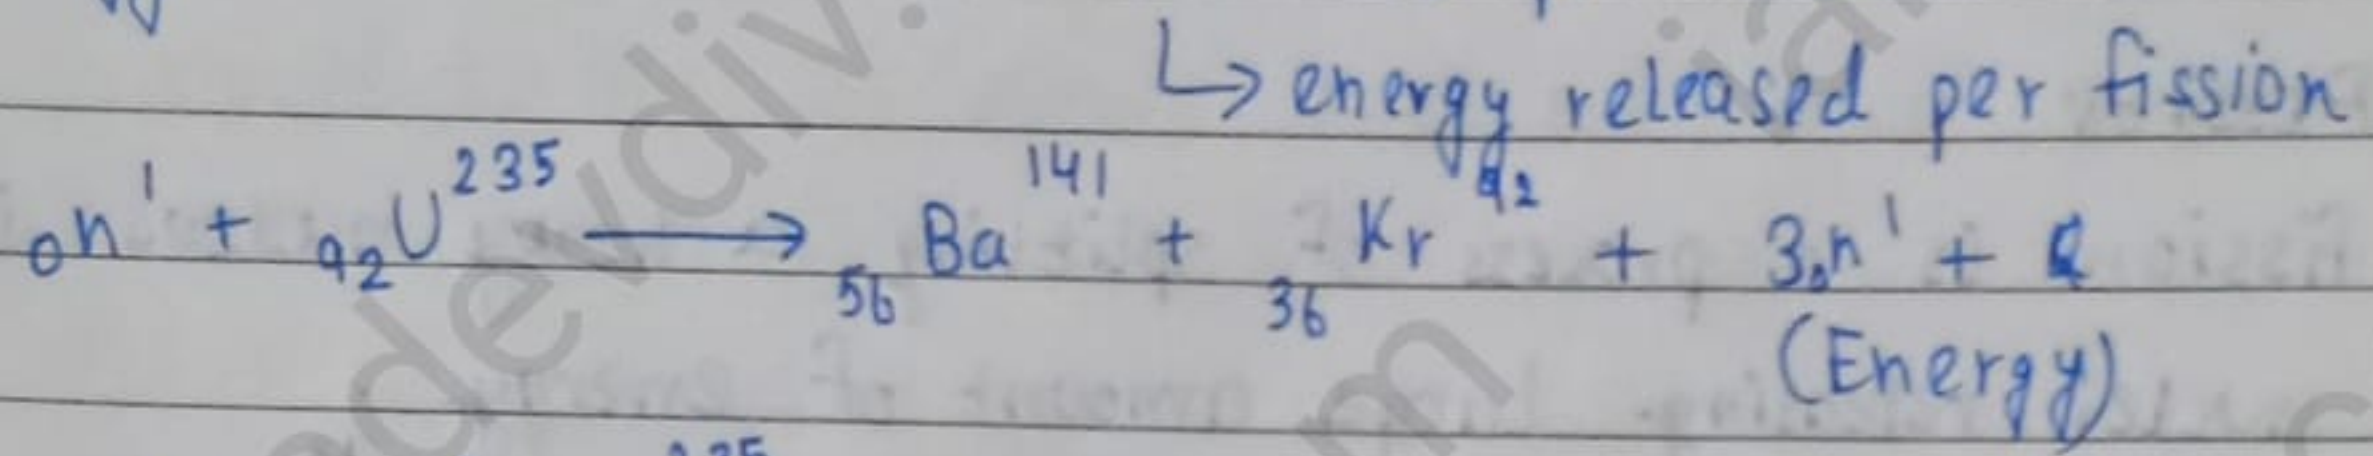 ↳ energy released per fission
₀n¹ + ₉₂U²³⁵ ⟶ ₅₆Ba¹⁴¹ + ₃₆Kr⁹² + 3₀n¹ + Q
(Energy)